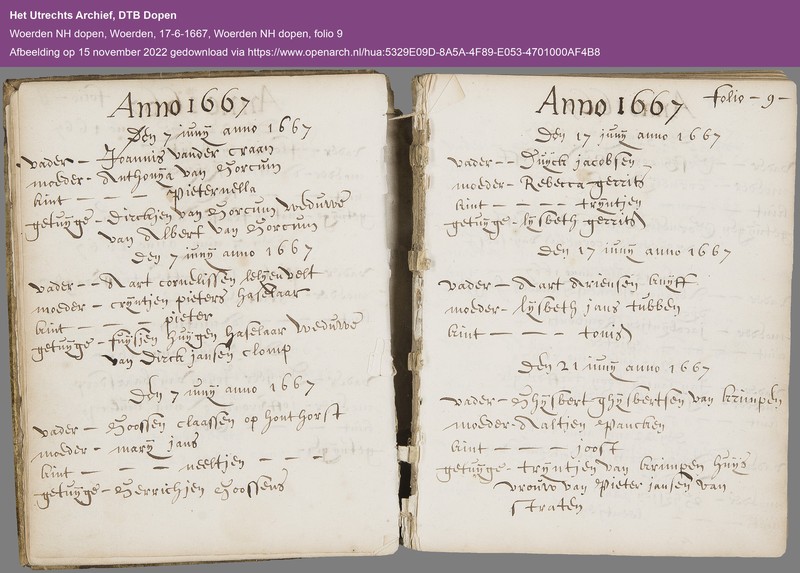 Het Utrechts Archief, DTB Dopen
Woerden NH dopen, Woerden, 17-6-1667, Woerden NH dopen, folio 9
Afbeelding op 15 november 2022 gedownload via https://www.openarch.nl/hua:5329E09D-8A5A-4F89-E053-4701000AF4B8
Anno 1667
Den 7 iunÿ anno 1667
vader - Joannis vander Craan
moeder - Anthonya van Gorcum
kint - - - - Pieternella
getuÿge - Dirckjen van Gorcum weduwe
van Albert van Gorcum
Den 7 iunÿ anno 1667
vader - Aart cornelissen lelyenvelt
moeder - crÿntjen pieters haselaar
kint - - - pieter
getuÿge - fuÿsjen huÿgen haselaar weduwe
van Dirck jansen clomp
Den 7 iunÿ anno 1667
vader - Goossen claassen op honthorst
moeder - marÿ jans
kint - - - - neeltjen - - -
getuÿge - Gerrichjen Goossens
Anno 1667
Folio - 9 -
Den 17 junÿ anno 1667
vader - - Duÿck jacobsen
moeder - Rebecca gerrits
kint - - - - trÿntjen
getuÿge - lÿsbeth gerrits
Den 17 iunÿ anno 1667
vader - - Aart Ariensen kruÿff
moeder - lÿsbeth jans tubben
kint - - - - tonis
Den 21 iunÿ anno 1667
vader - - Ghÿsbert ghÿsbertsen van krimpen
moeder - Aaltjen Pancken
kint - - - - joost
getuÿge - trÿntjen van krimpen huÿs
vrouw van Pieter jansen van
straten